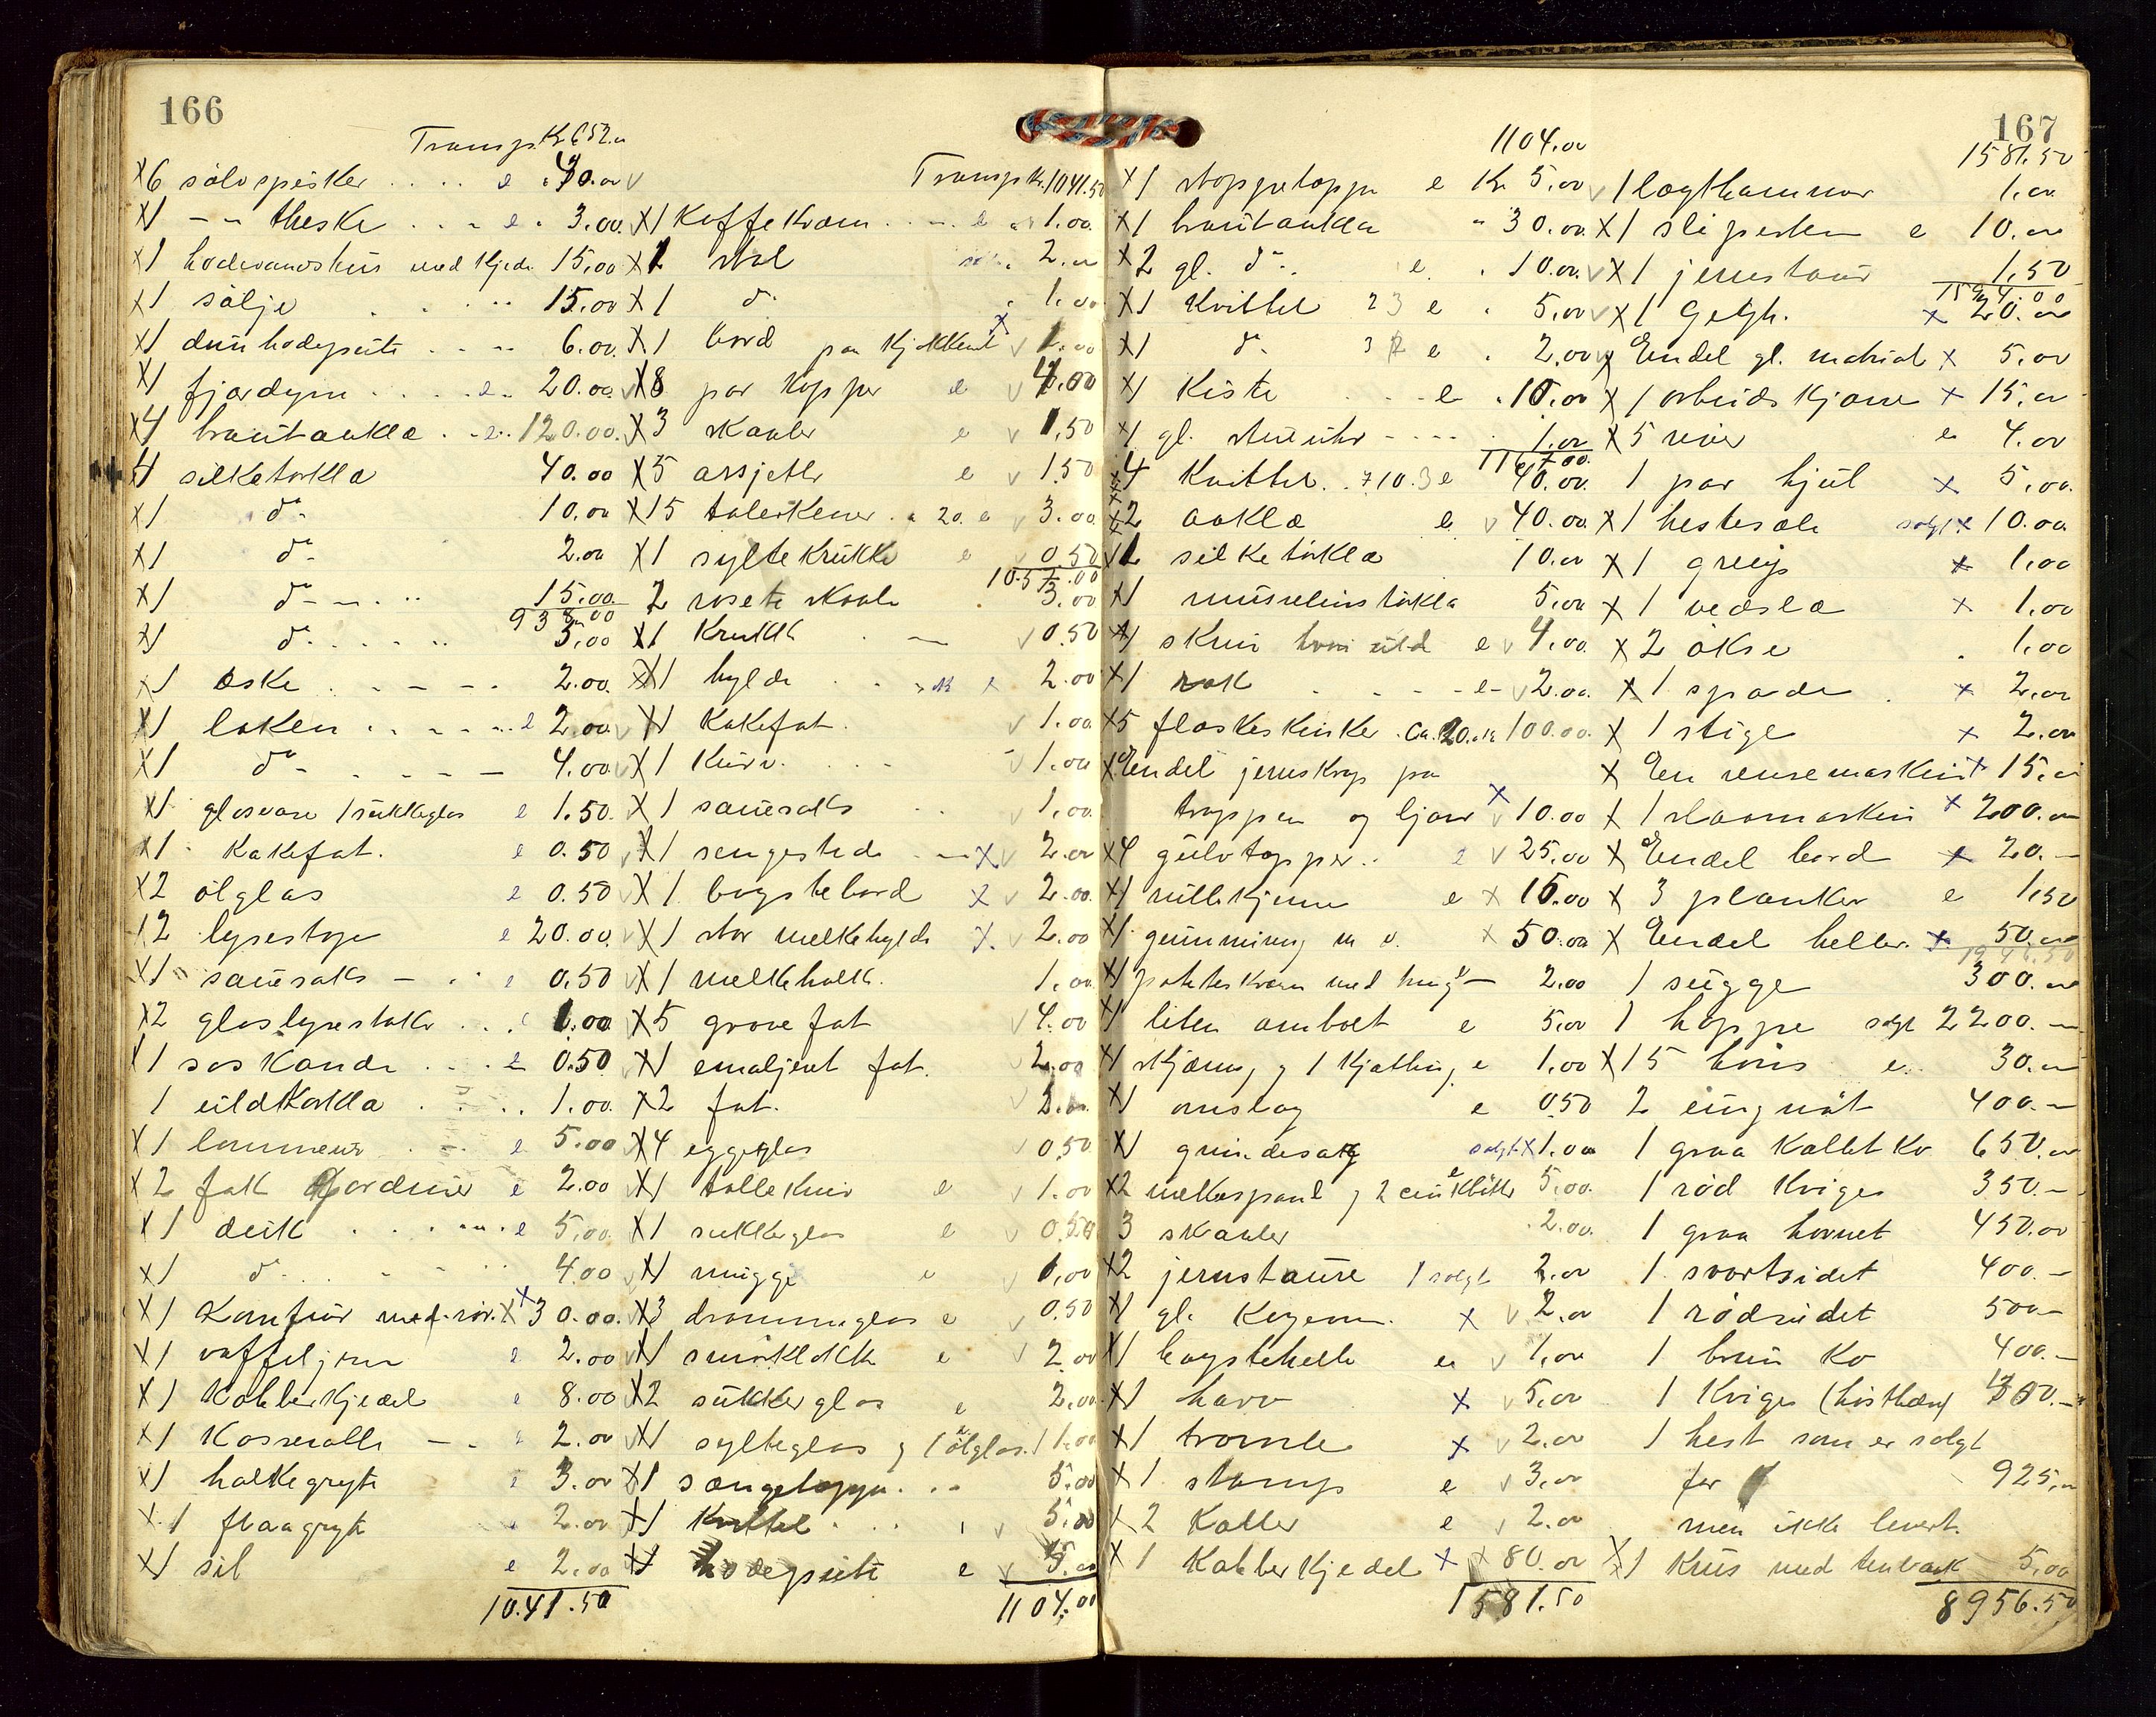 166
Transp. Kr 652.00
X6 sølvspisker e 40.00 v
X1 -"- theske e 3.00
X1 hodevandshus med Kjede 15,00
X1 sølje 15.00
X1 dunhodepute 6.00
X1 fjærdyne e 20.00
X4 brautaakla e 120.00
4 silketørkla 40.00
X1 do 10.00
X1 do 2.00
X1 do 15.00
938.00
X1 do 3,00
X1 æske 2.00
X1 laken e 2.00
X1 do 4.00
X1 glasvase 1 sukkeglas e 1.50
X1 Kakefat. e 0.50
X2 ølglas e 0.50
12 lysestope e 20.00
X1 sauesaks e 0.50
X2 glaslysestake 1.00
X1 soskande e 0.50
1 uldtørkla 1.00
X1 lommeur e 5.00
X2 fak Gardiner e 2.00
X1 duk e 5,00
X1 do 4.00
X1 Komfur med rør. X 30.00
X1 vaffeljern e 2.00
X1 Kobberkjedel e 8.00
X1 Kasserolle 2.00
X1 bakkegryte e 3.00
X1 flaagryte 2.00
X1 sil e 2.00
1041.50
Transp Kr. 1041.50
X1 Kaffekværn e 1.00
X2 stol 2.00
X1 do 1.00
X1 bord paa Kjøkkenet X v 1.00
X8 par Kopper e v 4.00
X3 skaaler e v 1,50
X5 assjetter e v 1.50
X15 talerkener a 20. e v 3.00
X1 syltekrukke e 0.50
1057.00
2 rosete skaale 3.00
X1 Krukke v 0.50
X1 hylde 2.00
X1 Kakefat. v 1.00
X1 Kurv. v 1.00
X1 sauesaks v 1.00
X1 sengestede X v 2.00
X1 bogstebord X v 2.00
X1 stor melkehylde X. v 2.00
X1 melkebolk. 1.00
X5 grove fat v 4.00
X1 emaljert fat. 2.00
X2 fat. v
X4 eggeglas v 0.50
X1 tollekniv e v 1.00
X1 sukkerglas e v 0.50
X1 mugge e v 1,00
X3 drammeglas e v 0.50
X1 smørklokke e v 2.00
X2 sukkerglas e 2.00
X1 sylteglas og 1 ølglas. 1.00
X1 sængeteppe 5.00
X1 Kvittel v 5.00
X1 hodepute e v 5.00
1104.00
167
1104.00
X1 stoppeteppe e Kr 5,00
X1 brautaakla " 30.00
X2 gl. do e 10.00
X1 Kvittel 23 e 5,00
X1 do e 2.00
X1 Kiste e 10.00
X1 gl. stueuhr 1.00
1167.00
X4 Kvittel. 7.10.3 e 40.00
X2 aakla e v 40.00
X2 silketørkla 10.00
X1 musselinstørkla 5.00
X1 skrin hvori uld e v 4.00
X1 rok e v 2.00
X5 flaskeskinker ca. 20. 100.00
X Endel jernskrap paa
trappen og ljaar X v 10.00
X4 gulvtepper e v 25,00
X1 rullekjerne e X 15.00
X1 gumming m v. X 50.00
X1 poteteskværn med 2.00
X1 liten ambolt e 5.00
X1 skjæring og 1 Kjetting e 1,00
X1 omslag e 0.50
X1 grindesag solgt X 1.00
X2 melkespand og 2 5.00
3 skaaler 2.00
X2 jernstaure 1 solgt 2.00
X1 gl. X v 2.00
X1 bogstehelle e v 1,00
X1 harv X v 5.00
X1 tromle X v 2.00
X1 stamp e v 3,00
X2 Kaller e v 2.00
X1 Kobberkjedel X X 80.00
1581.50
1581.50
1 lægthammer 1.00
X1 slipesten e 10.00
X1 jernstaur 1,50
1594.00
X1 Geigh. X 20.00
X Endel gl. matrial X 5.00
X 1 arbeidskjærre X 15.00
X 5 river e 4.00
1 par hjul X 5,00
X 1 hestesæle solgt X 10.00
X 1 greip X 1,00
X 1 vedslæ X 1,00
X 2 økse 1,00
X 1 spade X 2,00
X 1 stige X 2.00
X En rensemaskin X 15.00
X 1 slaamaskin X 200.00
X Endel bord X 20.—
X 3 planker e 1,50
X Endel heller X 50.00
1946.50
1 sugge 300.00
1 hoppe solgt 2200.—
X15 høns e 30.00
2 ungnøt 400.—
1 graa kollet ko 650.00
1 rød kvige 350.—
1 graa hornet 450.00
1 svartsidet 400.—
1 rødsidet 500—
1 brun ko 400.—
1 kvige (høstbær)
1 hest som er solgt
for 925.00
men ikke levert.
X1 krus med tinlaak 5,00
8956.50